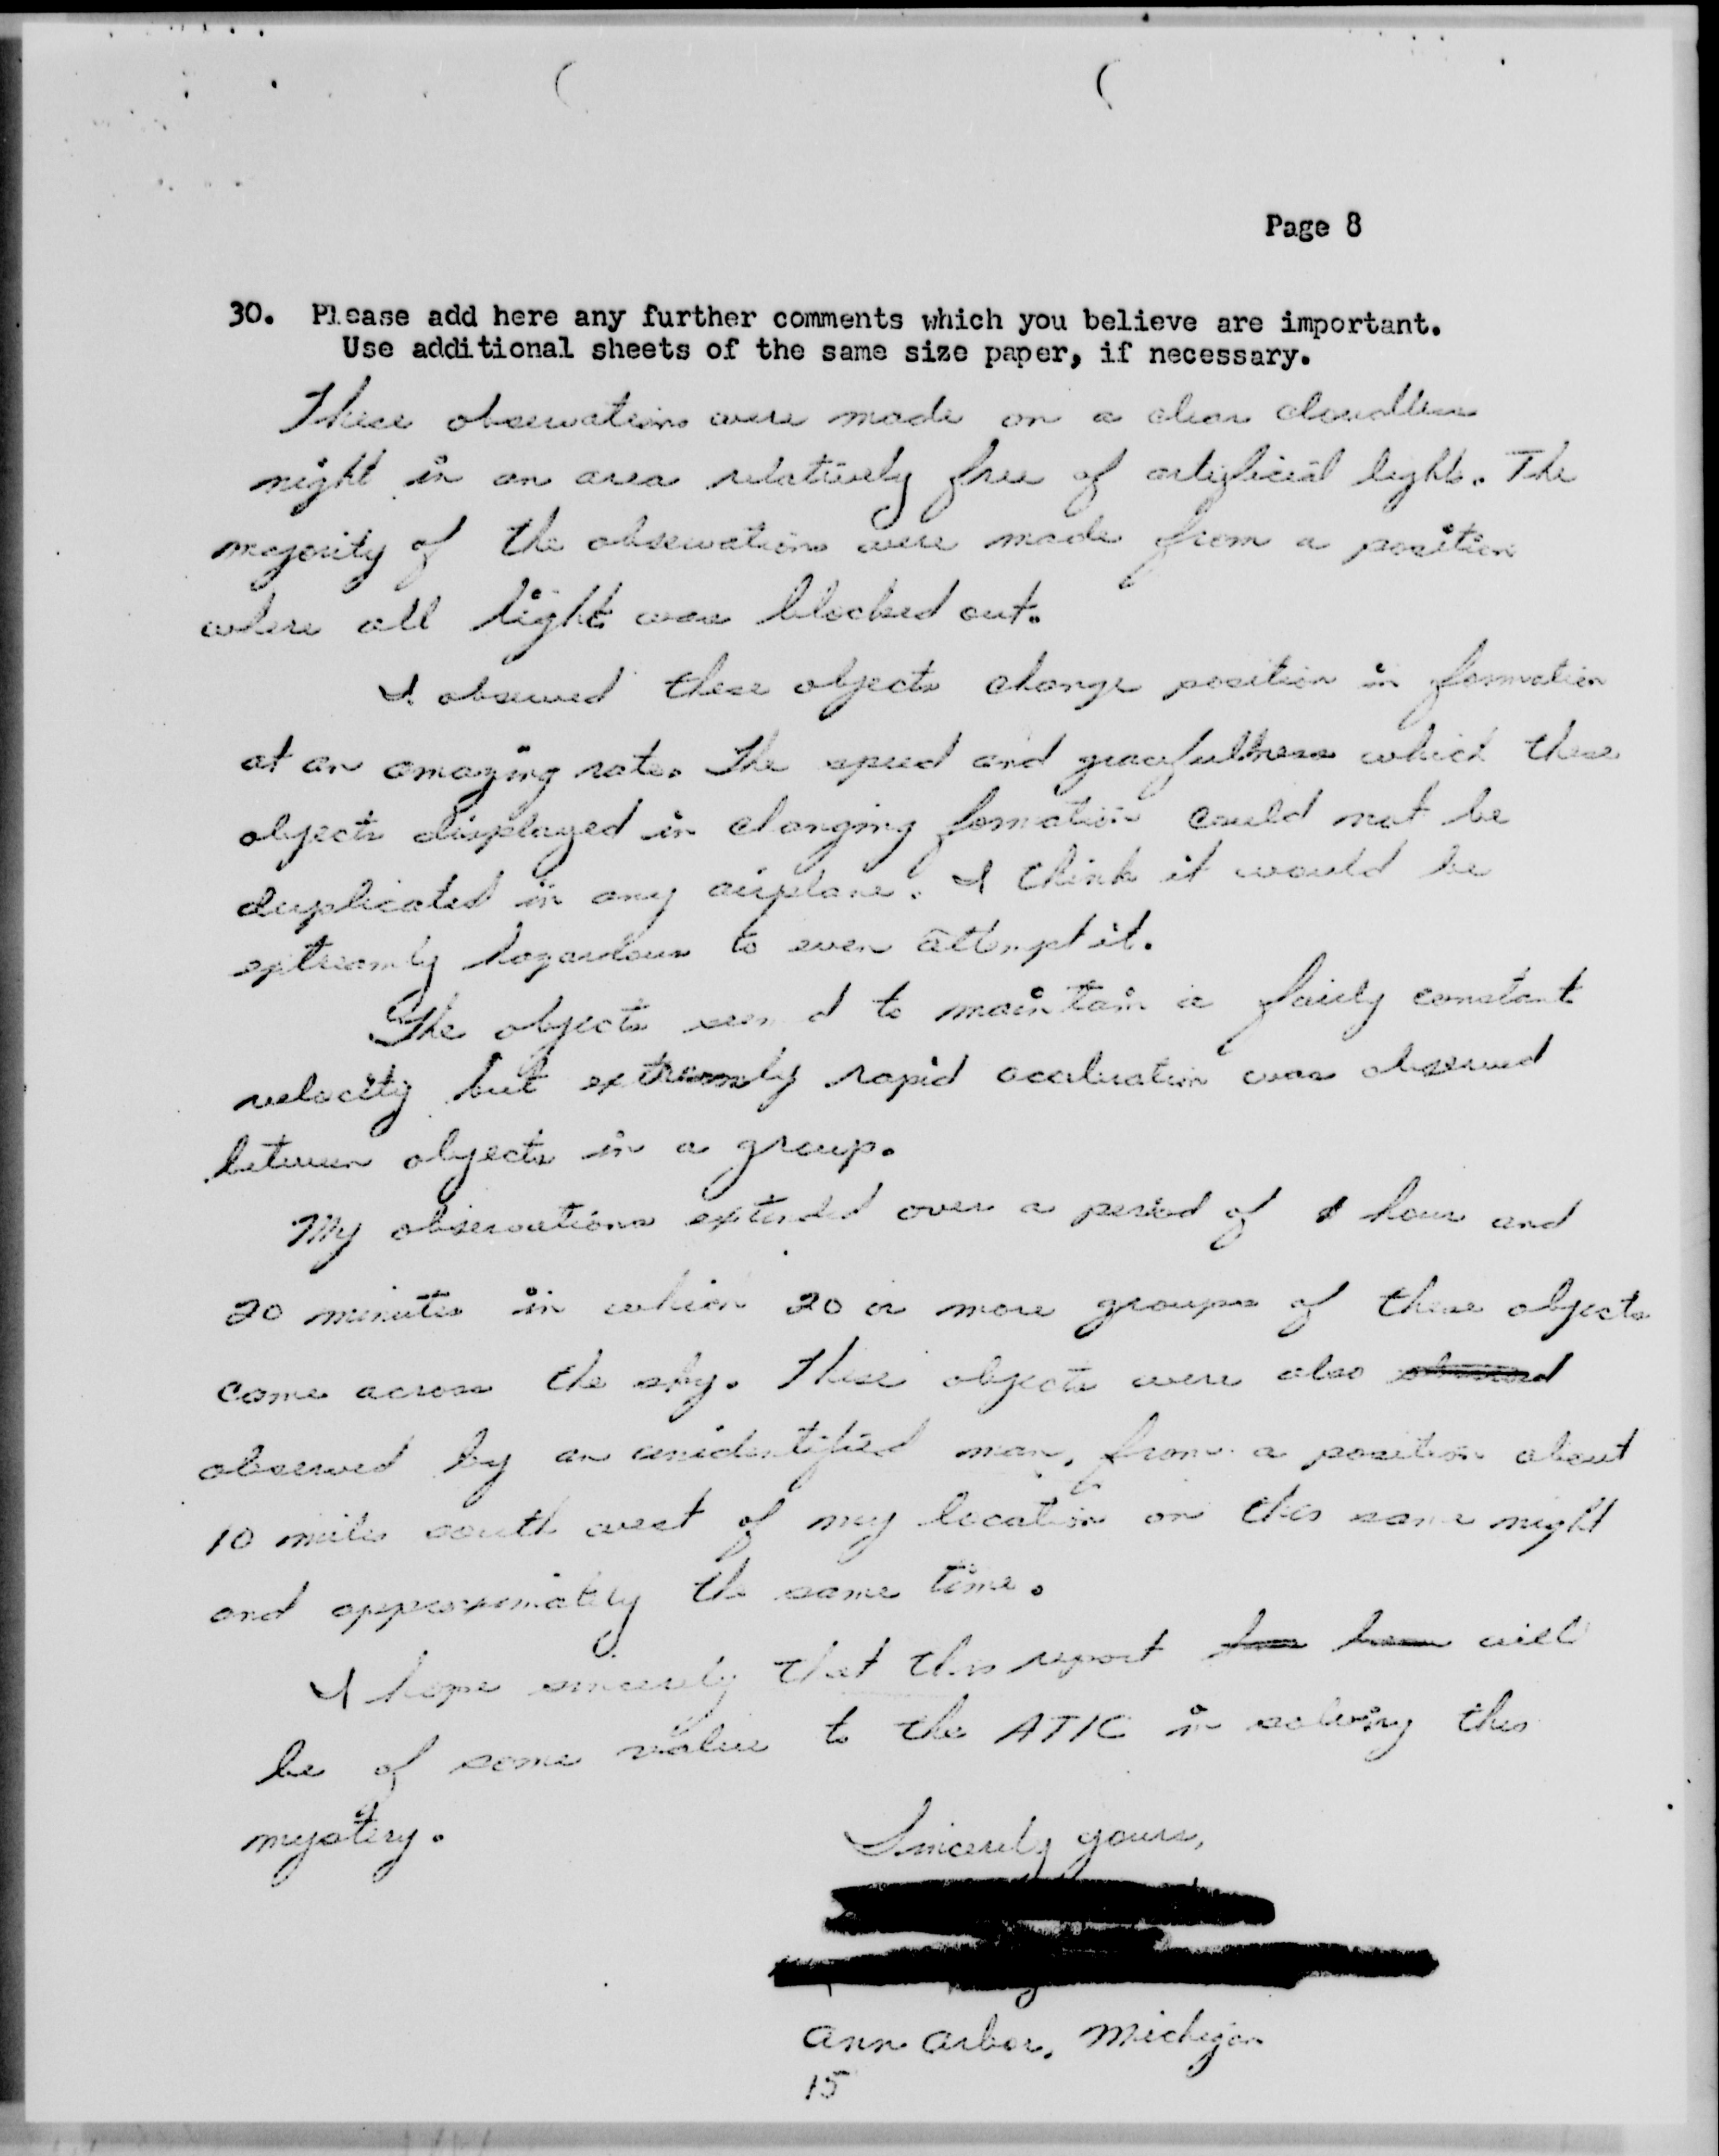 Page 8
30. Please add here any further comments which you believe are important.
Use additional sheets of the same size paper, if necessary.
These observations were made on a clear cloudless
night in an area relatively free of artificial light. The
majority of the observations were made from a position
where all light was blocked out.
I observed these objects change position in formation
at an amazing rate. The speed and gracefullness which these
objects displayed in changing formation could not be
duplicated in any airplane. I think it would be
extreamly hazardous to even attempt it.
The objects seem d to maintain a fairly constant
velocity but extreamly rapid acceleration was observed
between objects in a group.
My observations extended over a period of 1 hour and
20 minutes in which 20 or more groups of these objects
came across the sky. These objects were also observed
observed by an unidentified man, from a position about
10 miles south west of my location on this same night
and approximately the same time.
I hope sincerely that this report will
be of some value to the ATIC in solving this
mystery.
Sincerely yours,
Ann Arbor, Michigan
15